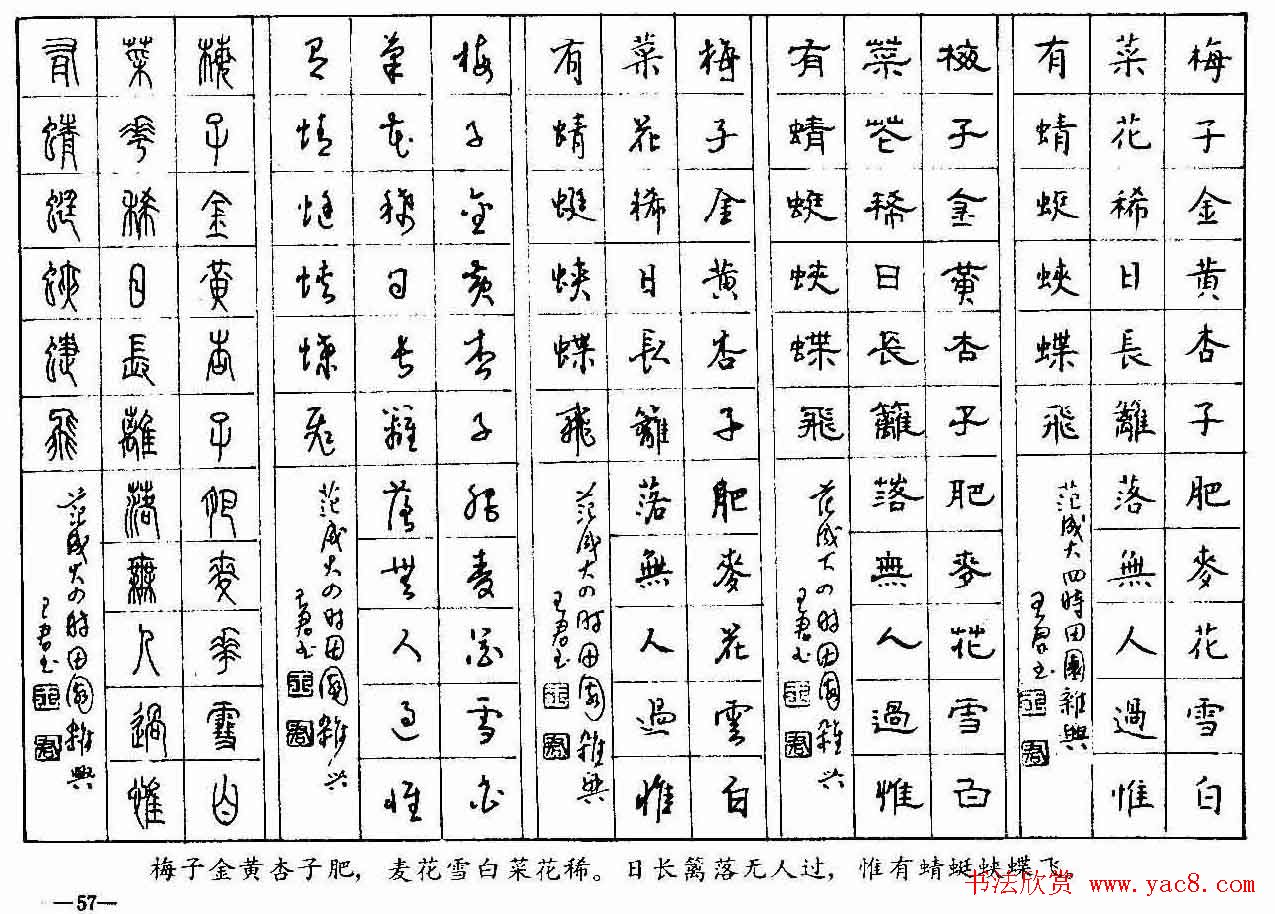 梅子金黄杏子肥麥花雪白
菜花稀日長籬落無人過惟
有蜻蜓蛺蝶飛
范成大四時田園雜興
王君书
梅子金黄杏子肥麥花雪白
菜花稀日長籬落無人過惟
有蜻蜓蛺蝶飛
范成大四时田园雜兴
王君书
梅子金黄杏子肥麥花雪白
菜花稀日長籬落無人過惟
有蜻蜓蛺蝶飛
范成大四时田园雜興
王君书
梅子金黄杏子肥麥花雪白
菜花稀日長籬落無人過惟
有蜻蜓蛺蝶飛
范成大四时田園雜兴
王君书
梅子金黄杏子肥麥華雪白
菜華稀日長離落無人過惟
有蜻蜓蛺蝶飛
范成大四时田园雜興
王君书
梅子金黄杏子肥，麦花雪白菜花稀。日长篱落无人过，惟有蜻蜓蛱蝶飞。
书法欣赏 www.yac8.com
—57—